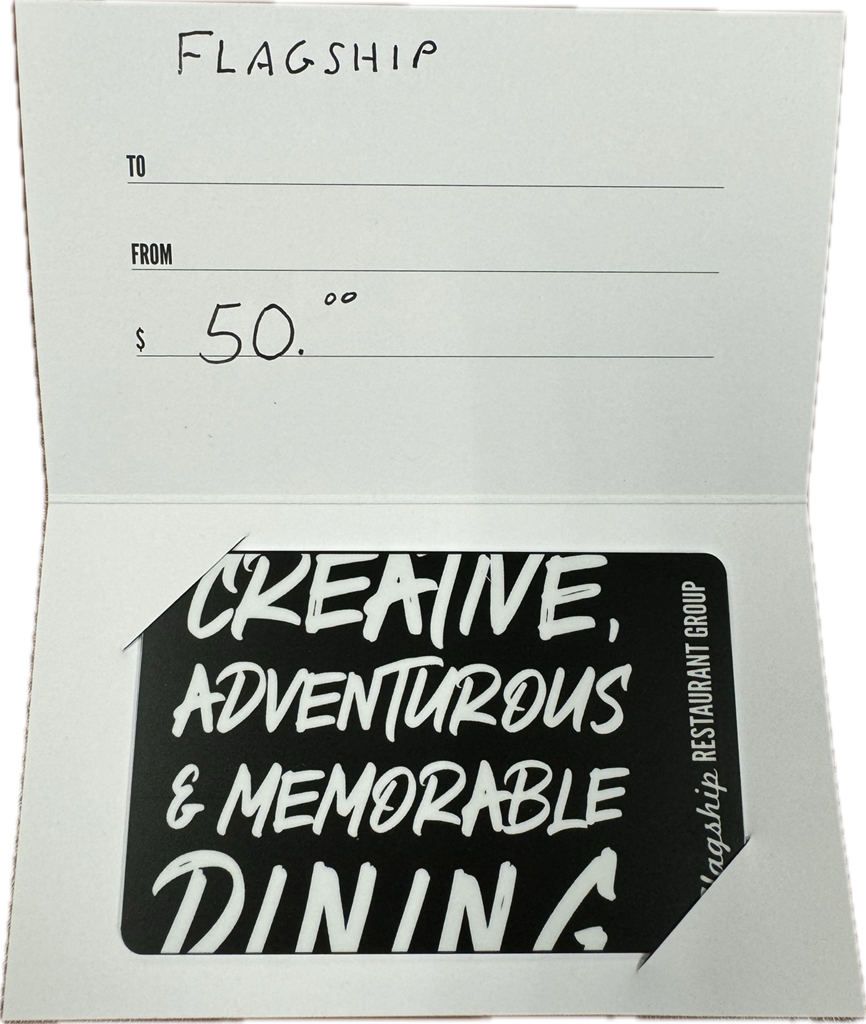 FLAGSHIP
TO
FROM
$ 50.00
CREATIVE,
ADVENTUROUS
& MEMORABLE
DINING
flagship RESTAURANT GROUP